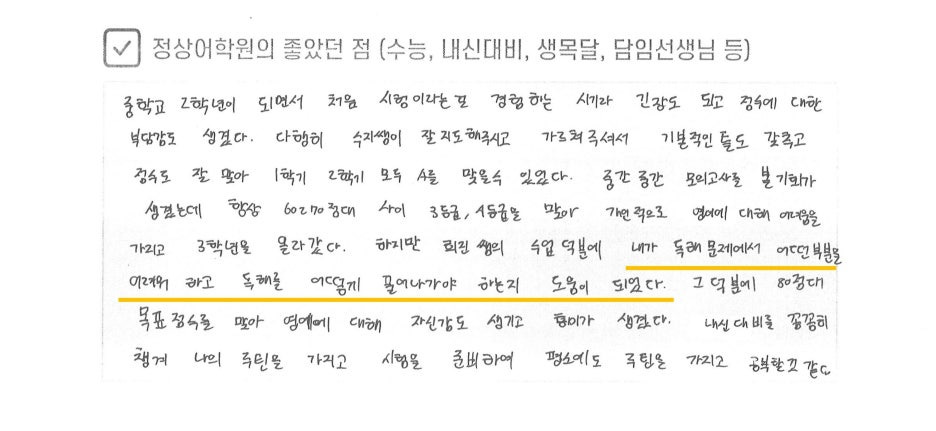 정상어학원의 좋았던 점 (수능, 내신대비, 생목달, 담임선생님 등)
중학교 2학년이 되면서 처음 시험이라는 또 경험하는 시기라 긴장도 되고 점수에 대한
부담감도 생겼다. 다행히 수지쌤이 잘 지도해주시고 가르쳐주셔서 기본적인 틀도 갖추고
점수도 잘 맞아 1학기 2학기 모두 A를 맞을수 있었다. 중간중간 모의고사를 볼 기회가
생겼는데 항상 60에 70점대 사이 3등급, 4등급을 맞아 개인적으로 영어에 대해 어려움을
가지고 3학년을 올라갔다. 하지만 희진 쌤의 수업 덕분에 내가 독해 문제에서 어떤 부분을
어려워 하고 독해를 어떻게 풀어나가야 하는지 도움이 되었다. 그 덕분에 80점대
목표 점수를 맞아 영어에 대해 자신감도 생기고 흥미가 생겼다. 내신대비를 꼼꼼히
챙겨 나의 루틴을 가지고 시험을 준비하여 평소에도 루틴을 가지고 공부할 것 같다